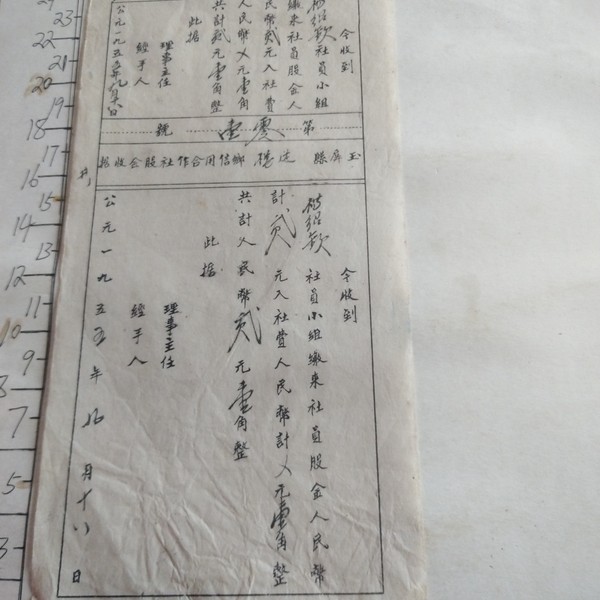 今收到
社員小組
繳來社員股金人
民幣貳元入社費
人民幣乂元壹角
共計貳元壹角整
此據
理事主任
經手人
公元一九五五年
第零壹號
玉屏縣 鄉信用合作社股金收據
今收到
社員小組繳來社員股金人民幣
計貳元入社費人民幣計乂元壹角整
共計人民幣貳元壹角整
此據
理事主任
經手人
公元一九五五年 月十八日
29
23
22
21
20
19
18
17
16
15
14
13
12
11
10
9
8
7
5
3